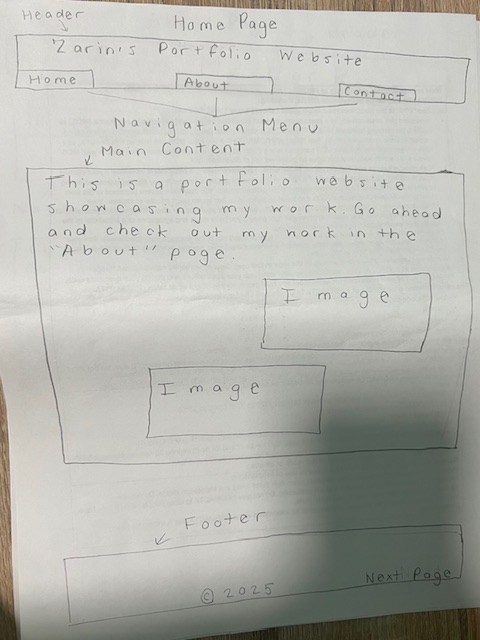 Header
Home Page
Zarin's Portfolio Website
Home
About
Contact
Navigation Menu
Main Content
This is a portfolio website
showcasing my work. Go ahead
and check out my work in the
"About" page.
Image
Image
Footer
© 2025
Next Page